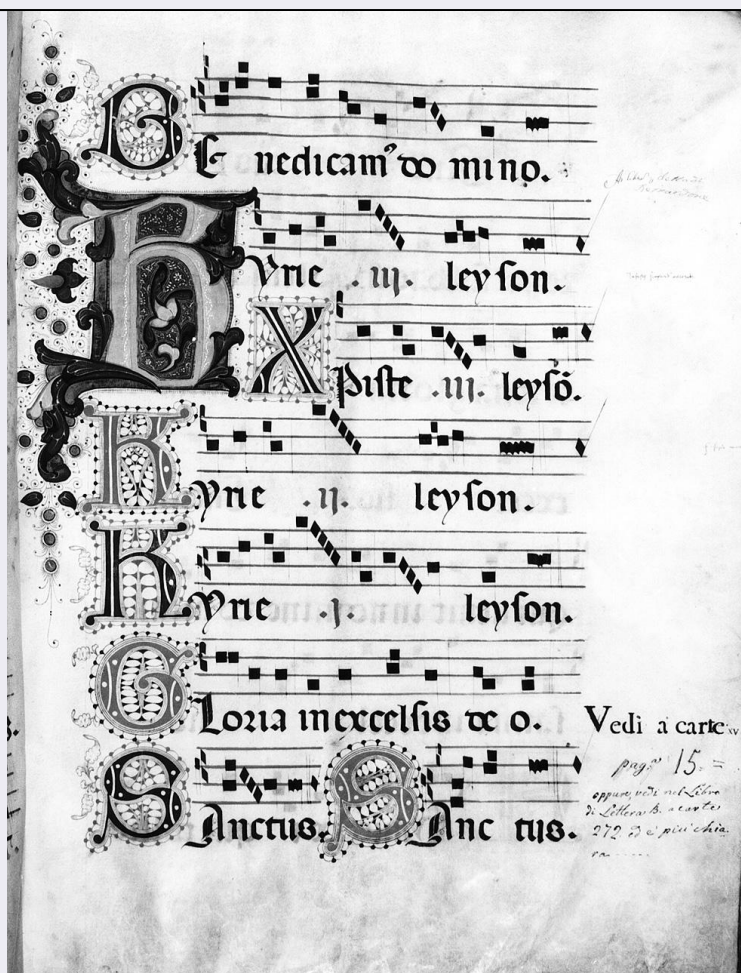 BE nedicam⁹ do mino.
Kyrie .iij. leyson.
Xpiste .iii. leysō.
Kyrie .ij. leyson.
Kyrie j. leyson.
Gloria in excelsis de o.
Vedi a carte xv
pag.ª 15. =
Sanctus. Sanc tus.
oppure vedi nel Libro
di Lettera B. a carte
272 ed è più chia
ra